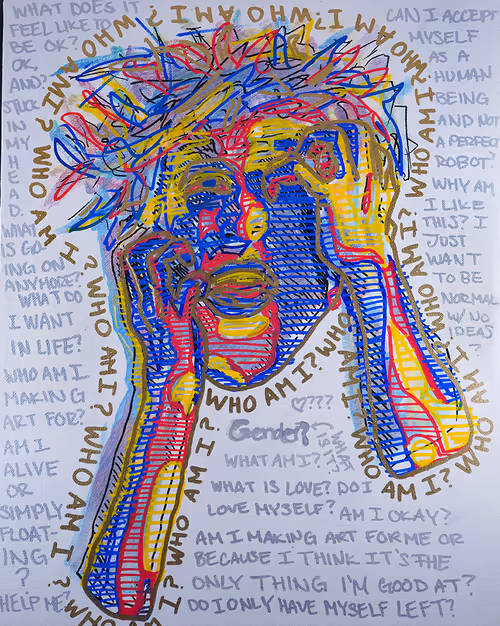 WHAT DOES IT
FEEL LIKE TO
BE OK?
OK,
AND;
STUCK
IN
MY
H
E
A
D.
WHAT
IS GO-
ING ON
ANYMORE?
WHAT DO
I WANT
IN LIFE?
WHO AM I
MAKING
ART FOR?
AM I
ALIVE
OR
SIMPLY
FLOAT-
ING
?
HELP ME?
WHO AM I? WHO AM I? WHO AM I? WHO AM I? WHO AM I? WHO AM I?
WHO AM I? WHO AM I? WHO AM I?
WHO AM I? WHO AM I? WHO AM I?
CAN I ACCEPT
MYSELF
AS A
HUMAN
BEING
AND NOT
A PERFECT
ROBOT?
WHY AM
I LIKE
THIS? I
JUST
WANT
TO BE
NORMAL
W/ NO
IDEAS
?
♡???
Gender?
WHAT AM I?
WHAT IS LOVE? DO I
LOVE MYSELF? AM I OKAY?
AM I MAKING ART FOR ME OR
BECAUSE I THINK IT'S THE
ONLY THING I'M GOOD AT?
DO I ONLY HAVE MYSELF LEFT?